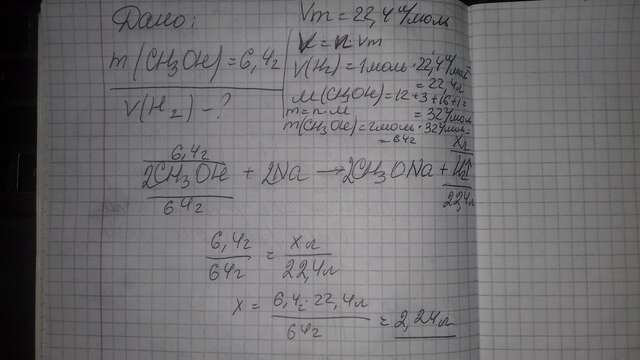 Дано:
m(CH3OH)=6,4г
V(H2)-?
Vm=22,4л/моль
V=n·Vm
V(H2)=1моль·22,4л/моль
=22,4л
M(CH3OH)=12+3+16+1=
=32г/моль
m=n·M
m(CH3OH)=2моль·32г/моль=
=64г
6,4г xл
2CH3OH + 2Na → 2CH3ONa + H2↑
64г 22,4л
6,4г/64г = xл/22,4л
x = 6,4г·22,4л/64г = 2,24л